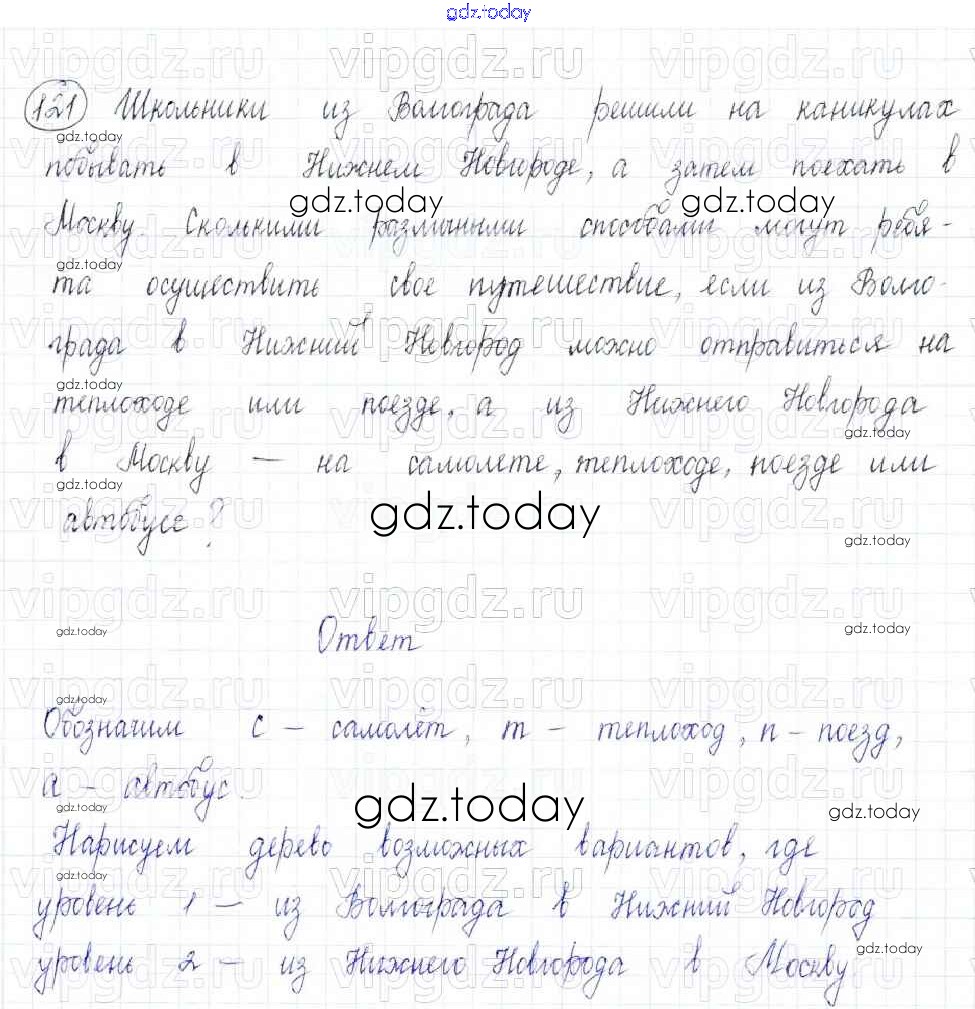 gdz.today
121 Школьники из Волгограда решили на каникулах
побывать в Нижнем Новгороде, а затем поехать в
Москву. Сколькими различными способами могут ребя-
та осуществить свое путешествие, если из Волго-
града в Нижний Новгород можно отправиться на
теплоходе или поезде, а из Нижнего Новгорода
в Москву — на самолете, теплоходе, поезде или
автобусе?
Ответ
Обозначим с – самолёт, т – теплоход, п – поезд,
а – автобус.
Нарисуем дерево возможных вариантов, где
уровень 1 – из Волгограда в Нижний Новгород
уровень 2 – из Нижнего Новгорода в Москву.